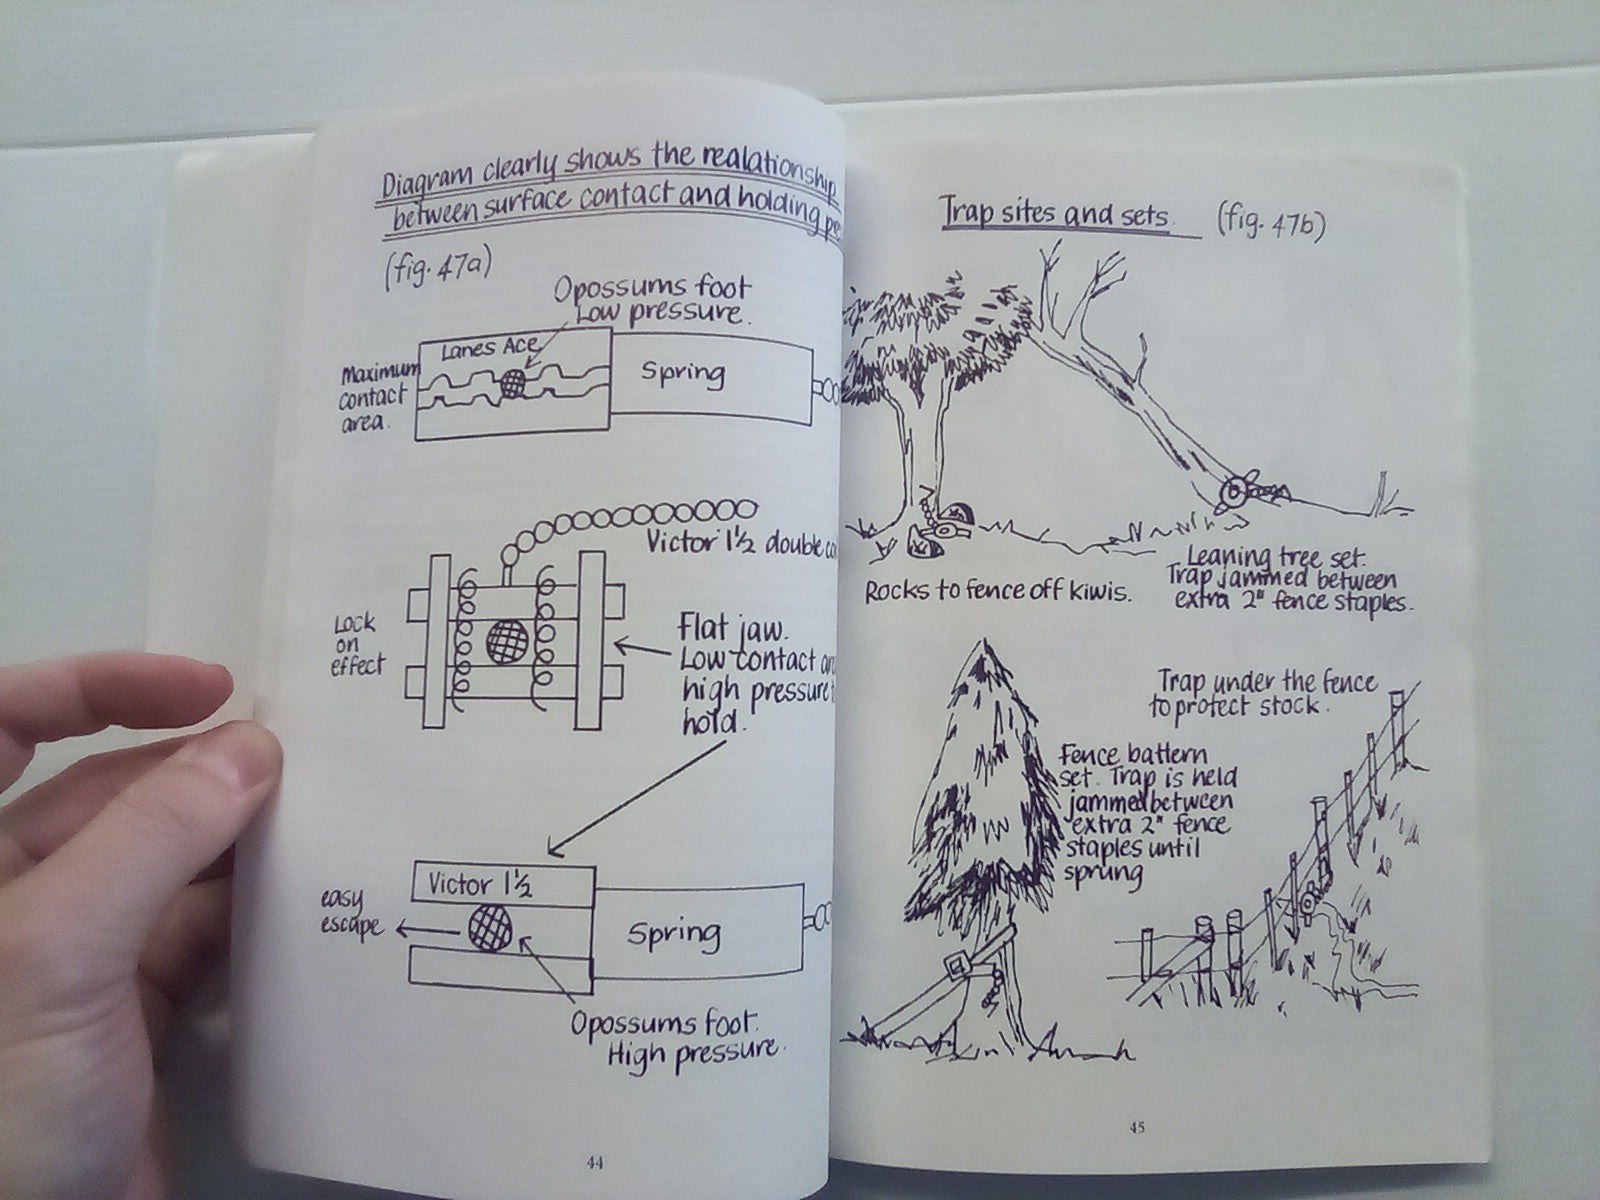 Diagram clearly shows the realationship
between surface contact and holding
(fig. 47a)
Opossums foot
Low pressure.
Lanes Ace
Spring
Maximum
contact
area.
Victor 1½ double
Lock
on
effect
Flat jaw.
Low contact
high pressure
hold.
Victor 1½
easy
escape
Spring
Opossums foot.
High pressure.
44
Trap sites and sets. (fig. 47b)
Rocks to fence off kiwis.
Leaning tree set.
Trap jammed between
extra 2" fence staples.
Trap under the fence
to protect stock.
Fence battern
set. Trap is held
jammed between
extra 2" fence
staples until
sprung
45